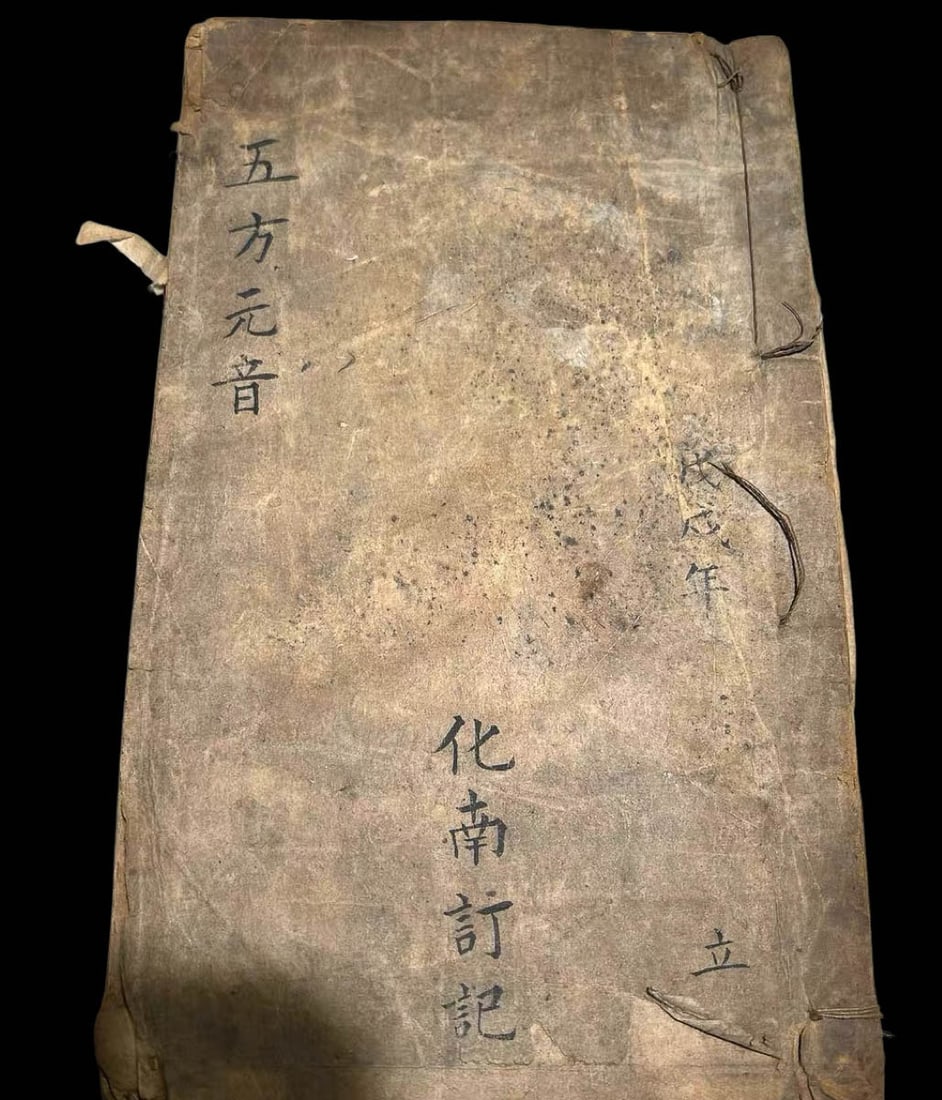 戊戌年
立
化南訂記
五方元音